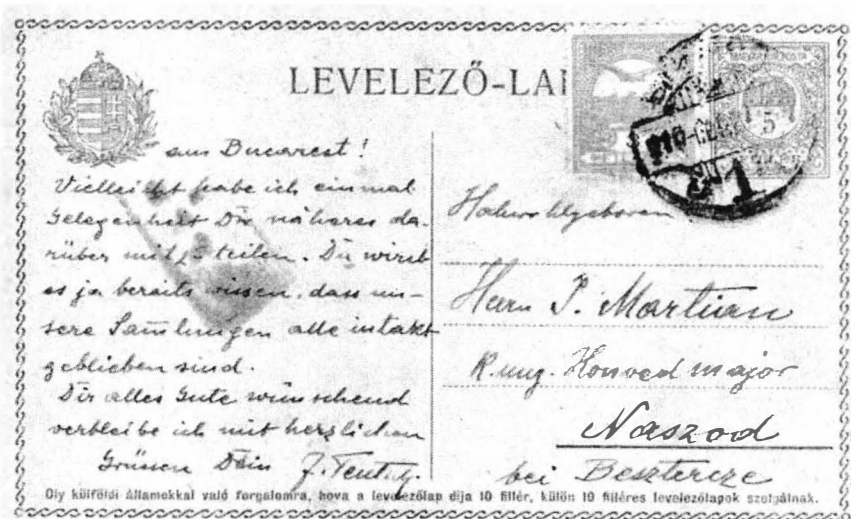 LEVELEZŐ-LA
MAGYAR KIR. POSTA
5
aus Bucarest!
Vielleicht habe ich einmal
Gelegenheit Dir näheres da-
rüber mitzuteilen. Du wirst
es ja bereits wissen, dass un-
sere Samlungen alle intakt
geblieben sind.
Dir alles Gute wünschend
verbleibe ich mit herzlichen
Grüssen Dein J. Teutsch.
Hochwohlgeboren
Herrn J. Martian
K. ung. Honved major
Naszod
bei Besztercze
Oly külföldi államokkal való forgalomra, hova a levelezőlap dija 10 fillér, külön 10 filléres levelezőlapok szolgálnak.